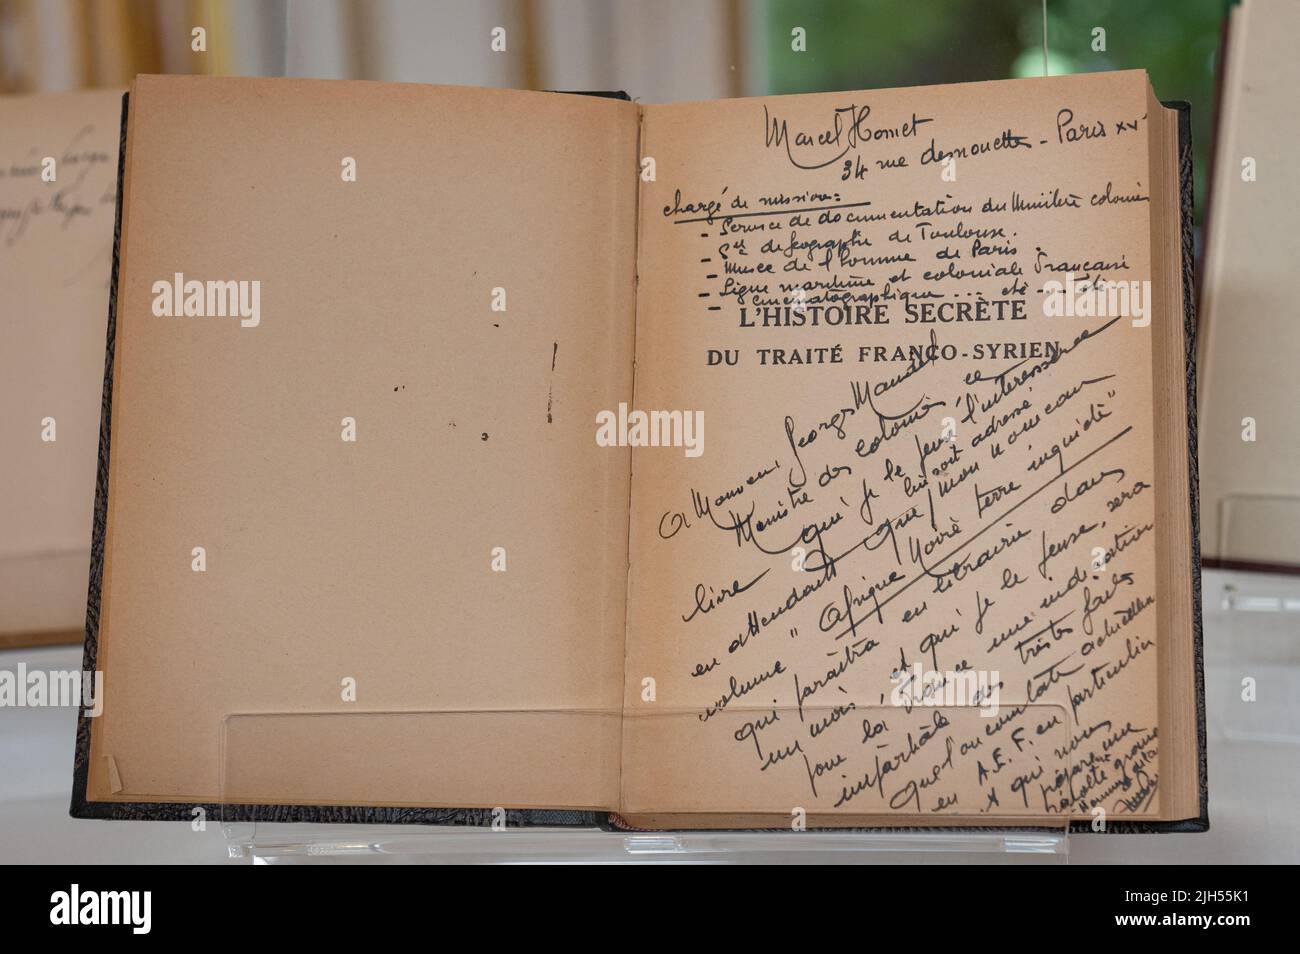 Marcel Homet
34 rue desnouettes - Paris XVe
chargé de mission:
- Service de documentation du Ministère colonies
- Sté de Géographie de Toulouse.
- Musée de l'Homme de Paris.
- Ligue maritime et coloniale Française
- cinématographique ... etc ...
L'HISTOIRE SECRÈTE
DU TRAITÉ FRANCO-SYRIEN
A Monsieur Georges Mandel
Ministre des colonies, ce
livre qui je le pense l'intéressera
lui soit adressé
en attendant que mon nouveau
volume "Afrique Noire terre inquiète"
qui paraîtra en librairie dans
un mois, et qui je le pense, sera
pour la France une indication
impartiale des tristes faits
que l'on constate actuellement
en A.E.F. en particulier
et qui nous
prépare une
révolte grave
alamy
alamy
Image ID: 2JH55K1
www.alamy.com